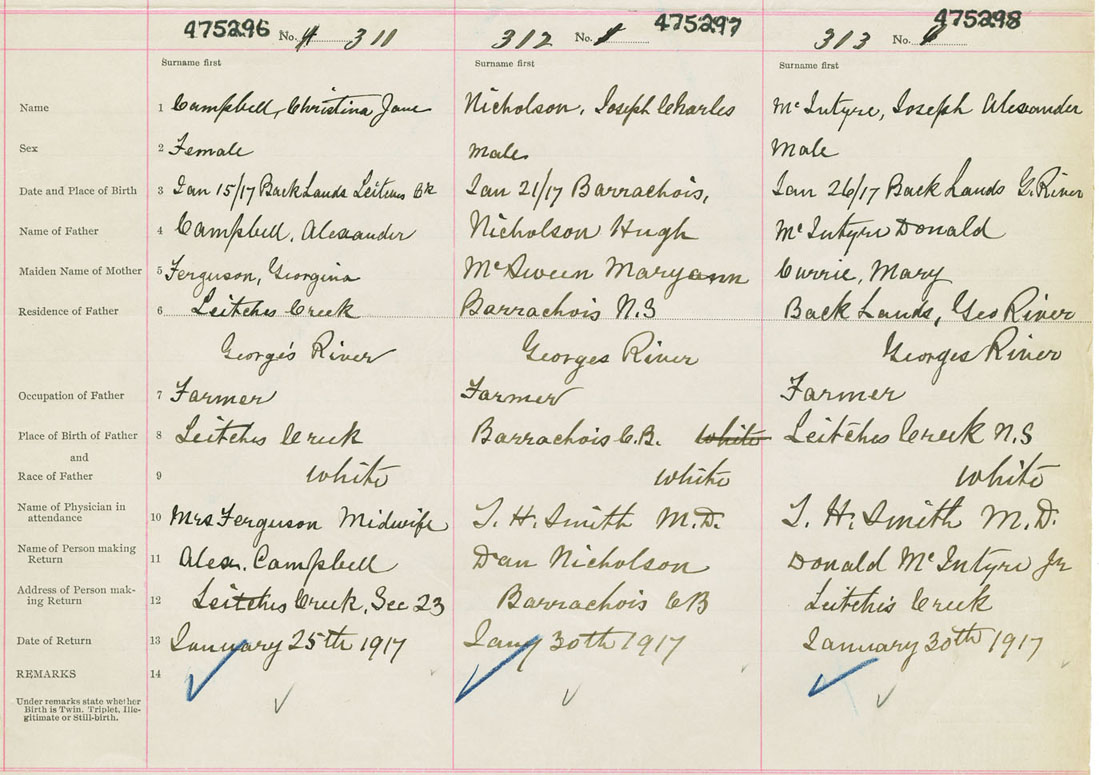 475296 No. 4 311 312 No. 475297 313 No. 475298
Surname first Surname first Surname first
Name 1 Campbell, Christina Jane Nicholson, Joseph Charles McIntyre, Joseph Alexander
Sex 2 Female male Male
Date and Place of Birth 3 Jan 15/17 Back Lands Leitches Ck Jan 21/17 Barrachois, Jan 26/17 Back Lands G. River
Name of Father 4 Campbell, Alexander Nicholson Hugh McIntyre Donald
Maiden Name of Mother 5 Ferguson, Georgina McSween Maryann Currie, Mary
Residence of Father 6 Leitches Creek Barrachois N.S Back Lands, Geo River
George's River Georges River Georges River
Occupation of Father 7 Farmer Farmer Farmer
Place of Birth of Father 8 Leitches Creek Barrachois C.B. white Leitches Creek N.S
and
Race of Father 9 white white white
Name of Physician in
attendance 10 Mrs Ferguson Midwife T. H. Smith M.D. T. H. Smith M.D.
Name of Person making
Return 11 Alex. Campbell Dan Nicholson Donald McIntyre Jr
Address of Person mak-
ing Return 12 Leitches Creek, Sec 23 Barrachois CB Leitchis Creek
Date of Return 13 January 25th 1917 Jany 30th 1917 January 30th 1917
REMARKS 14
Under remarks state whether
Birth is Twin. Triplet, Ille-
gitimate or Still-birth.